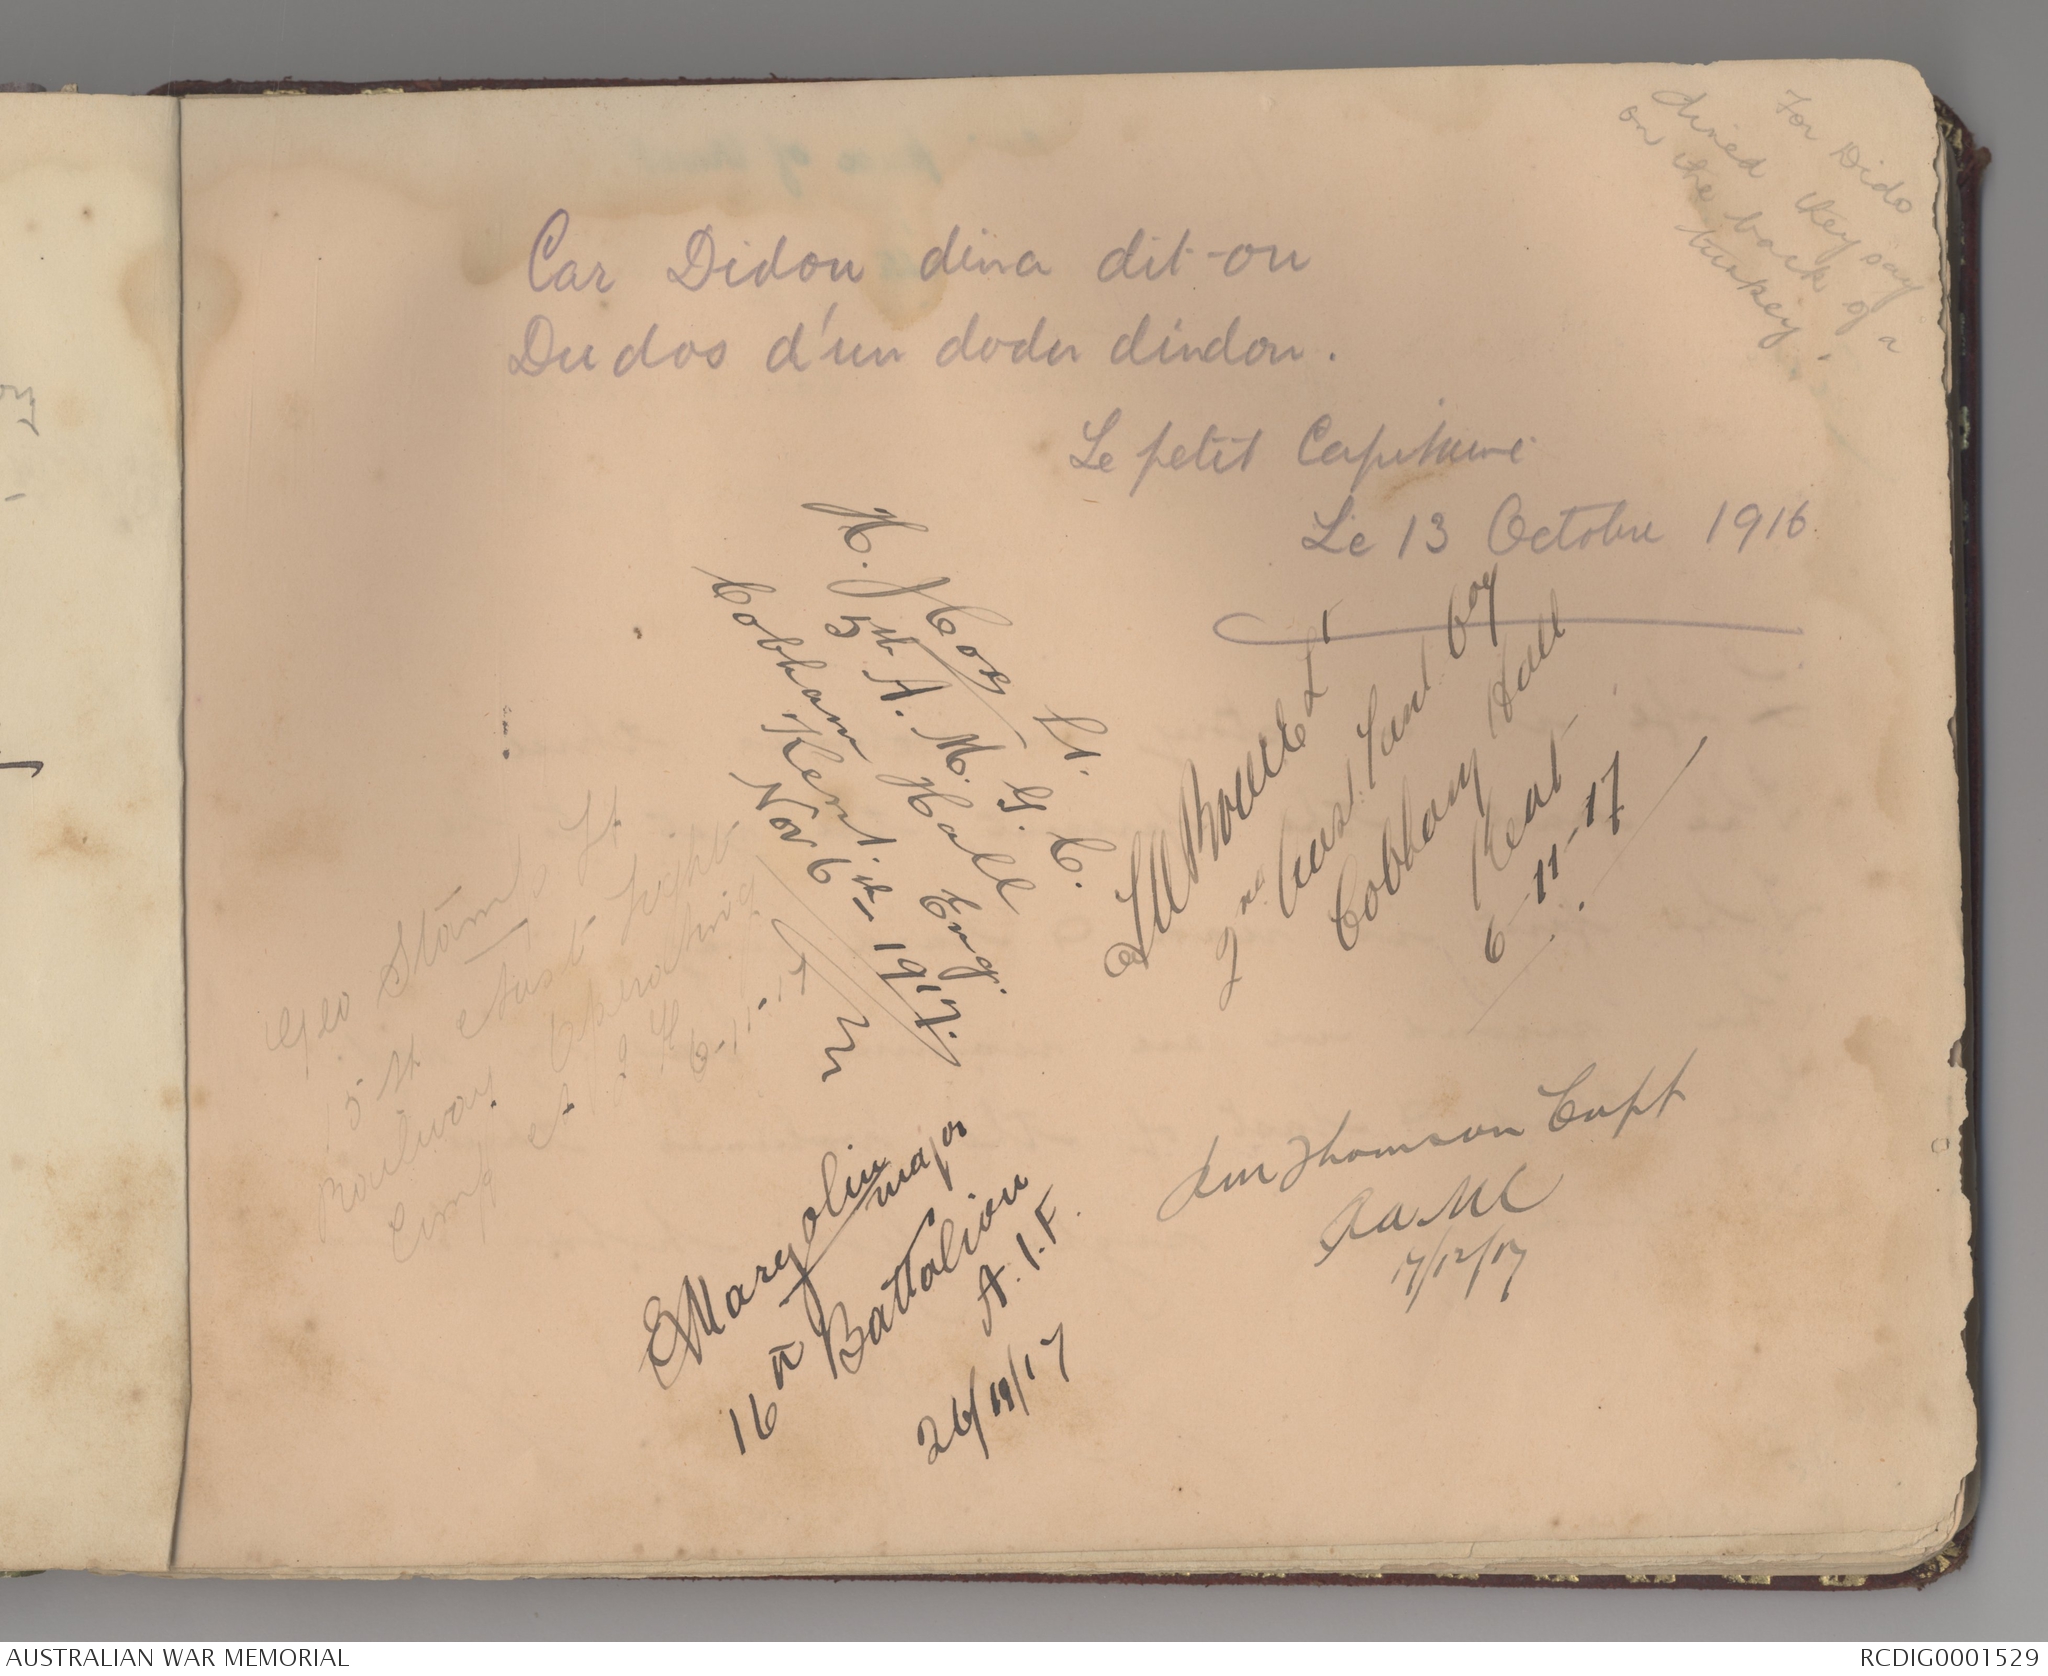 For Dido
dined they say
on the back of a
turkey.
Car Didon dina dit-on
Du dos d'un dodu dindon.
Le petit Capitaine
Le 13 Octobre 1916
H. J. Hog Lt.
5th A. M. G. C.
Cobham Hall
Kent. Eng.
Nov 6th 1917.
Lt
2nd Aust Tunl Coy
Cobham Hall
Kent
6-11-17
Geo Lt
15th Aust Light
Railway Operating
Comp A I F
6-11-17
E Margolin
major
16th Battalion
A.I.F.
26/11/17
Thomson Capt
AAMC
17/12/17
AUSTRALIAN WAR MEMORIAL
RCDIG0001529